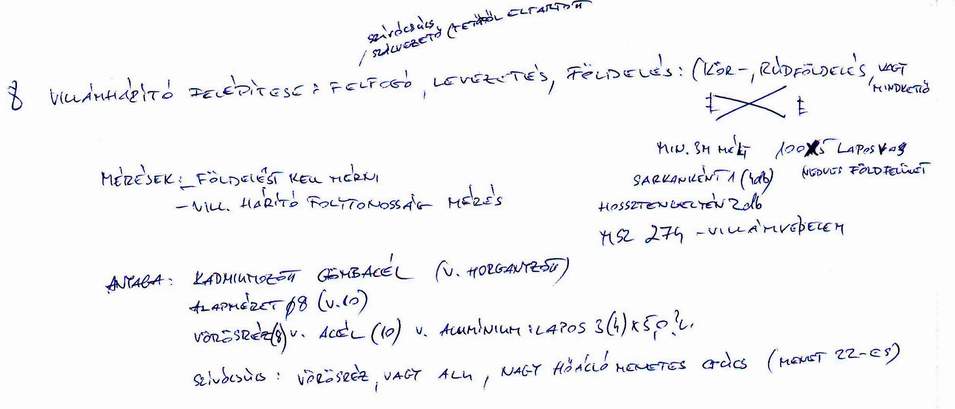 SZÍVÓCSÚCS,
SZÁLVEZETŐ (TETŐTŐL ELTARTOTT
8 VILLÁMHÁRÍTÓ FELÉPÍTÉSE: FELFOGÓ, LEVEZETÉS, FÖLDELÉS: (KÖR-, RÚDFÖLDELÉS, VAGY
MINDKETTŐ
MIN. 3M MÉLY 100X5 LAPOSVAS
MÉRÉSEK: - FÖLDELÉST KELL MÉRNI SARKANKÉNT 1 (4db) NEDVES FÖLDFELÜLET
- VILL. HÁRÍTÓ FOLYTONOSSÁG MÉRÉS HOSSZTENGELYÉN 2db
MSZ 274 - VILLÁMVÉDELEM
ANYAGA: KADMIUMOZOTT GÖMBACÉL (V. HORGANYZOTT)
ALAPMÉRET ø8 (V.10)
VÖRÖSRÉZ(8) V. ACÉL (10) V. ALUMÍNIUM: LAPOS 3(4) X
SZÍVÓCSÚCS: VÖRÖSRÉZ, VAGY ALU, NAGY HŐÁLLÓ MENETES CSÚCS (MENET 22-ES)